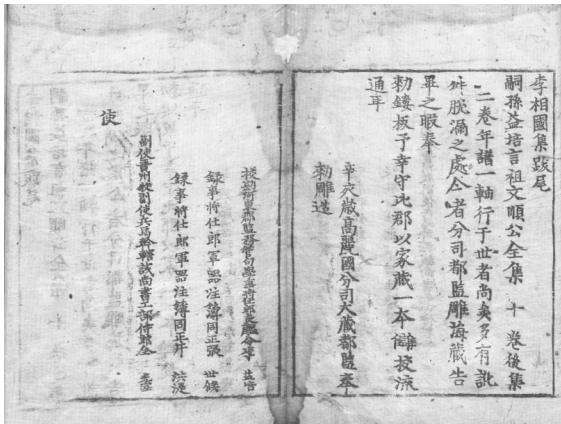 李相國集跋尾
嗣孫益培言祖文順公全集 十 卷後集
二卷年譜一軸行于世者尚矣多有訛
舛脫漏之處今者分司都監雕海藏告
畢之暇奉
勑鏤板予幸守比郡以家藏一本讎校流
通耳
辛亥歲高麗國分司大藏都監奉
勑雕造
校勘河東郡監務管句學事將仕郎良醞令李 益培
錄事將仕郎軍器注簿同正張 世候
錄事將仕郎軍器注簿同正 洪湜
副使晉州牧副使兵馬鈐轄試尚書工部侍郎全 光宰
使